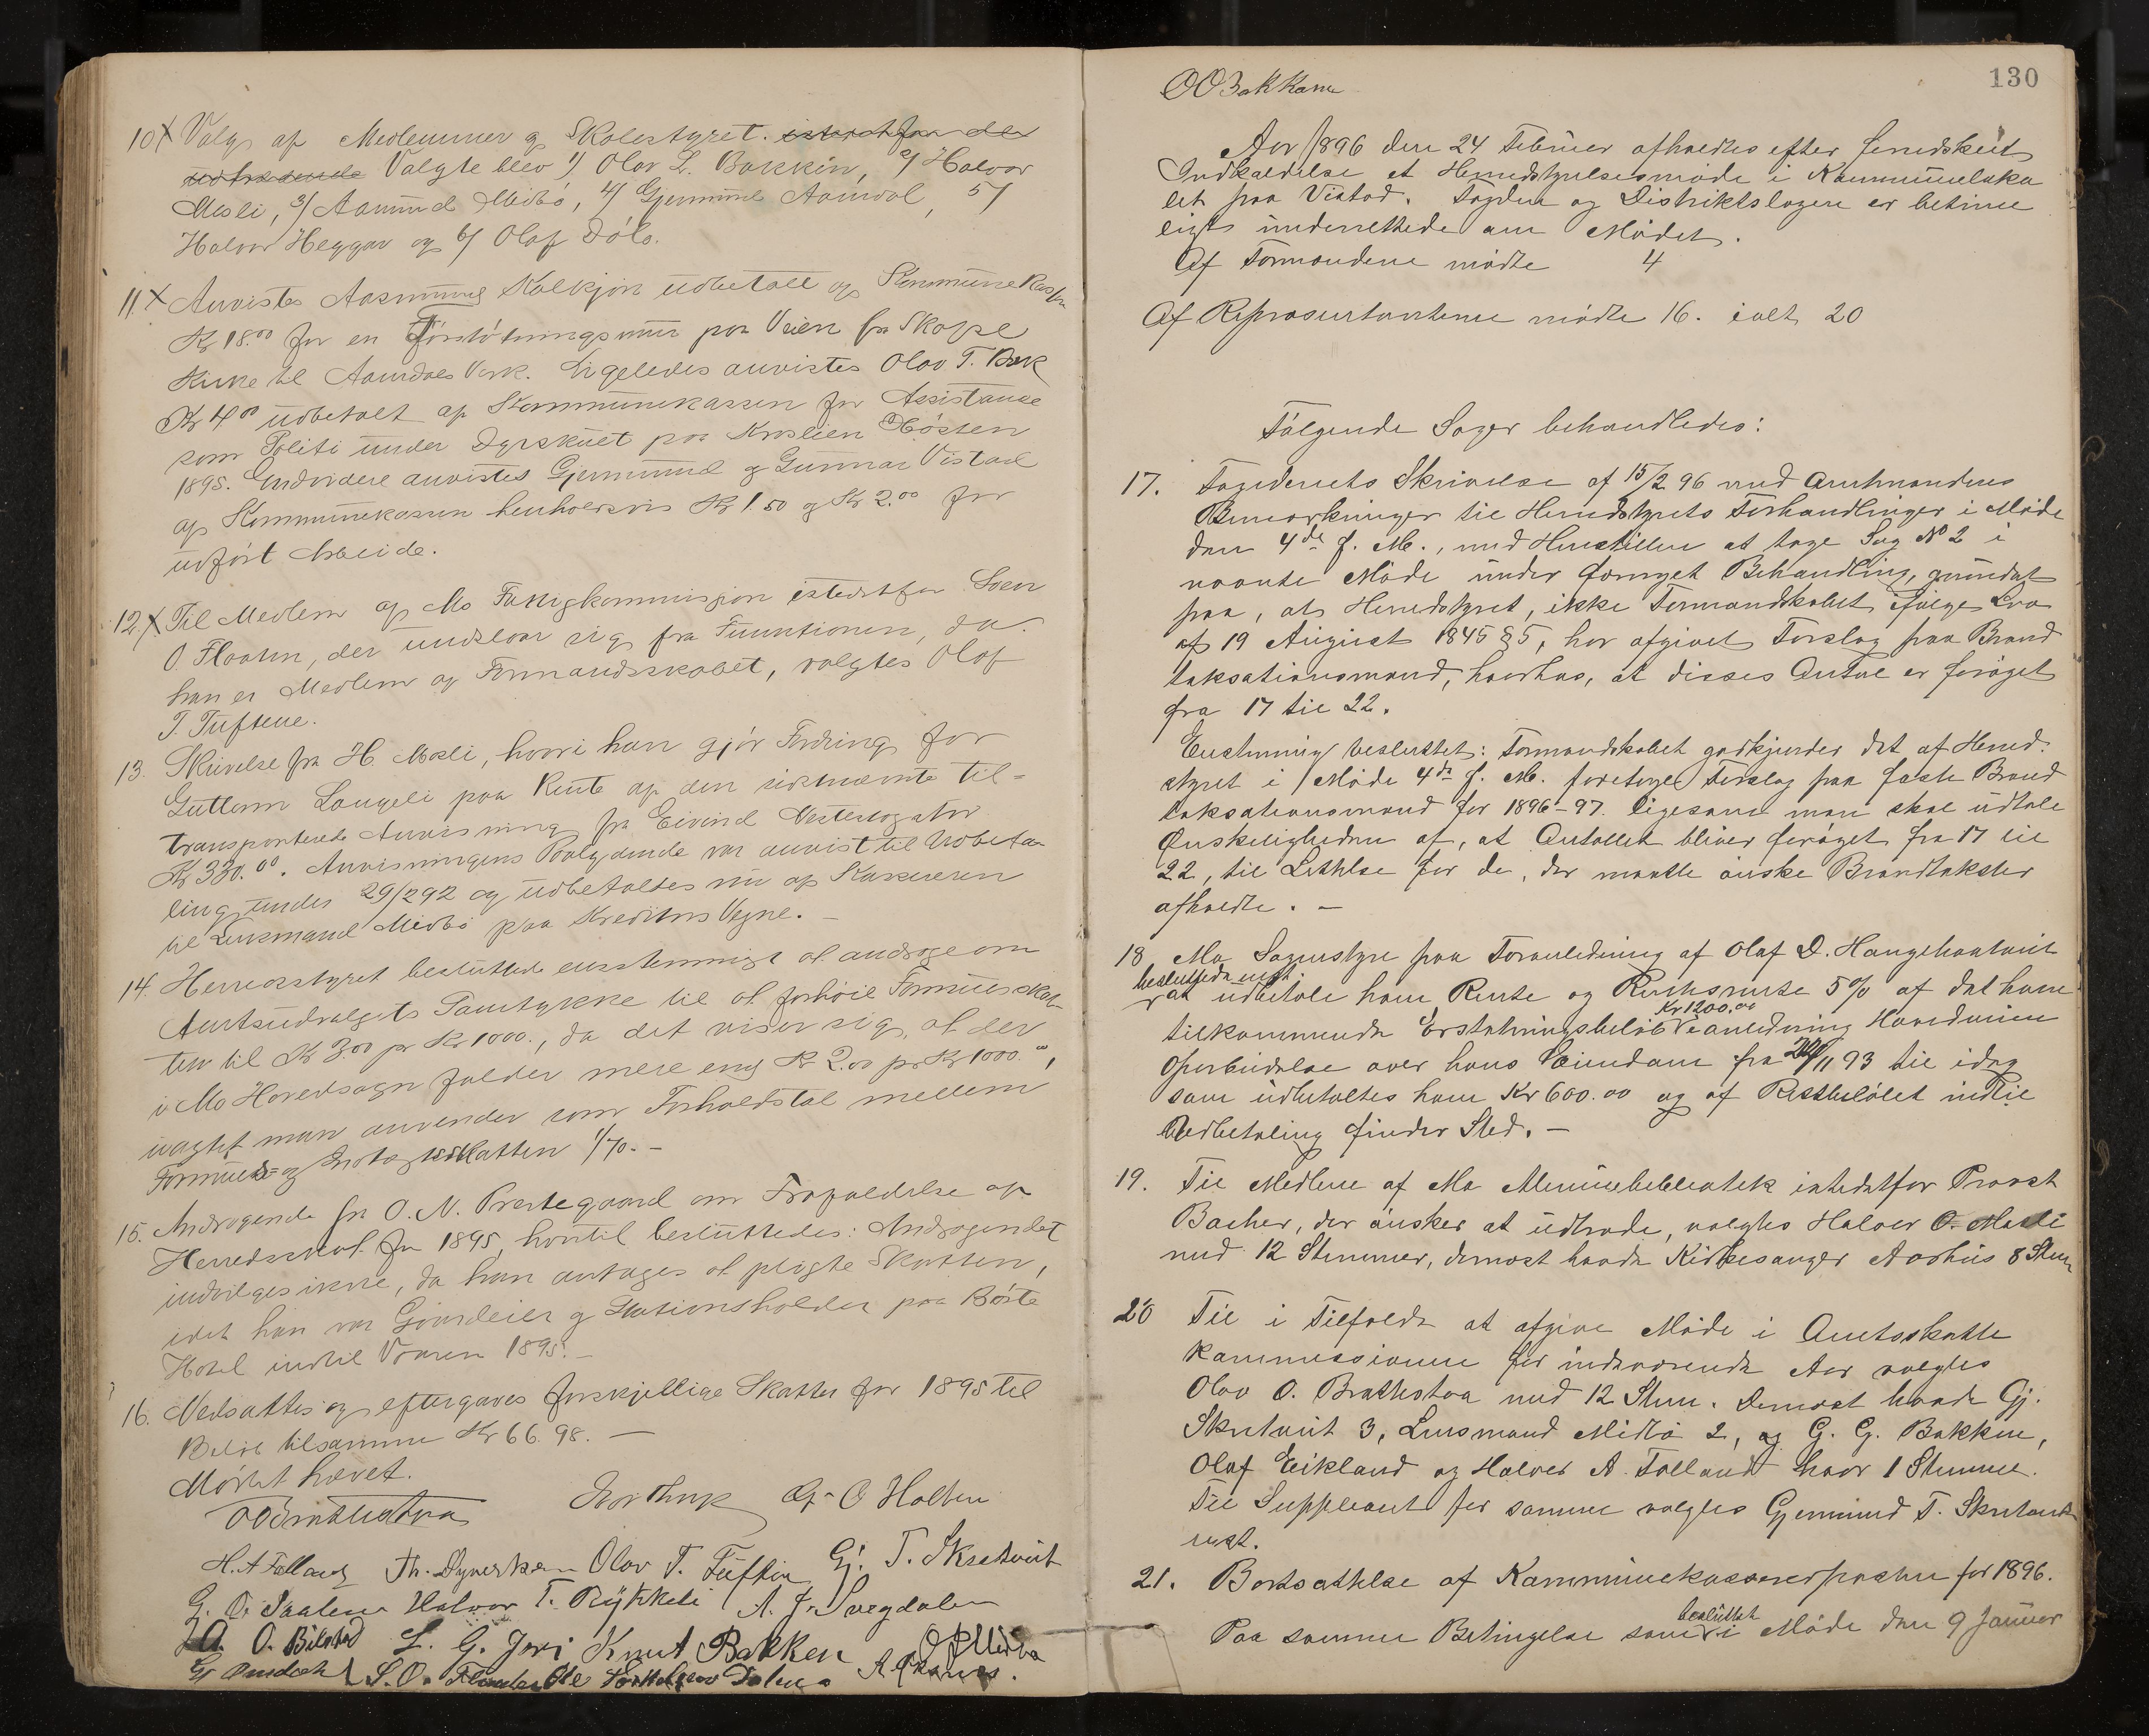 10 X Valg af Medlemmer af Skolestyret. istedetfor de
udtrædende Valgte blev 1/ Olav L. Bakken, 2/ Halvor
Mosli, 3/ Aamund Midbö, 4/ Gjermund Aamdal, 5/
Halvor Heggar og 6/ Olaf Döls.
11 X Anvistes Aasmund Kalkjön udbetalt af Kommunekassen
Kr 18.00 for en Forstötningsmur paa Veien fra Skafse
Kirke til Aamdals Verk. Ligeledes anvistes Olav T. Bak
Kr 4.00 udbetalt af Kommunekassen for Assistance
som Politi under Dyrskuet paa Kroslien Hösten
1895. Endvidere anvistes Gjermund og Gunnar Vistad
af Kommunekassen henholdsvis Kr 1.50 og Kr 2.00 for
udfört Arbeide.
12 X Til Medlem af Mo Fattigkommission istedetfor Sven
O. Flaatin, der undslaar sig fra Funktionen, da
han er Medlem af Formandsskabet, valgtes Olaf
T. Tuftene.
13. Skrivelse fra H. Mosli, hvori han gjör Fordring for
Guttorm Langeli paa Rente af den sidstnævnte til-
transporterede Anvisning fra Eivind
Kr 330.00. Anvisningens Paalydende var anvist til Udbeta
ling under 29/2 92 og udbetaltes nu af Kassereren
til Lensmand Midbö paa Kreditors Vegne. —
14. Herredsstyret besluttede enstemmigt at andrage om
Amtsudvalgets Samtykke til at forhöie Formuesskat-
ten til Kr 3.00 pr Kr 1000., da det viser sig, at der
i Mo Hovedsogn falder mere end Kr 2.00 pr Kr 1000.00,
uagtet man anvender som Forholdstal mellem
Formues- og Indtægtsskatten 1/70. —
15. Andragende fra O. N. Prestegaard om Frafaldelse af
Herredsskat for 1895, hvortil besluttedes: Andragendet
indvilges ikke, da han antages at pligte Skatten,
idet han var Gaardeier og Stationsholder paa Börte
Hotel indtil Vaaren 1895. —
16. Nedsattes og eftergaves forskjellige Skatter for 1895 til
Belöb tilsammen Kr 66.98. —
Mödet hævet.
OOBrathestaa G. O Holten
H. A Felland Th. Dynerksen Olav T. Tuftin Gj. T. Skretveit
G. O. Saalen Halvor T. Rykkeli A. J. Svegdalen
O. Bilstad L. G. Jori Knut Bakken O Midbö
S. O.
130
OOBakkane
Aar 1896 den 24 Februar afholdtes efter forudskeet
Indkaldelse et Herredstyrelsesmöde i Kommuneloka
let paa Vistad. Fogden og Distriktslægen er betime
ligt underrettede om Mödet.
Af Formændene mödte 4
Af Repræsentanterne mödte 16. ialt 20
Fölgende Sager behandledes:
17. Fogderiets Skrivelse af 15/2 96 med Amtmandens
Bemærkninger til Herredstyrets Forhandlinger i Möde
den 4de f. M., med Henstillen at tage Sag No 2 i
nævnte Möde under fornyet Behandling, grundet
paa, at Herredstyret, ikke Formandskabet ifölge Lov
af 19 August 1845 § 5, har afgivet Forslag paa Brand
taksationsmænd, hvorhos, at disses Antal er foröget
fra 17 til 22.
Enstemmig besluttet: Formandskabet godkjender det af Herred-
styret i Möde 4de f. M. foretagne Forslag paa faste Brand
taksationsmænd for 1896-97. ligesom man skal udtale
Önskeligheden af, at Antallet bliver foröget fra 17 til
22, til Lettelse for de, der maatte önske Brandtakster
afholdte. —
18 Mo Sognestyre paa Foranledning af Olaf D. Haugetvaatveit
besluttede enst.
at udbetale ham Rente og Rentesrente 5% af det ham
Kr 1200.00
tilkommende Erstatningsbelöb i anledning Hovedveiens
Oparbeidelse over hans Eiendom fra 20/11 93 til idag
som udbetaltes ham Kr 600.00 og af Restbelöbet indtil
Udbetaling finder Sted. —
19. Til Medlem af Mo Almuebibliotek istedetfor Provst
Bacher, der önsker at udtræde, valgtes Halvor O. Mosli
med 12 Stemmer, dernæst havde Kirkesanger Aarhus 8 Stem
20 Til i Tilfælde at afgive Möde i Amtsskatte
kommissionen for indeværende Aar valgtes
Olav O. Brathestaa med 12 Stem. Dernæst havde Gj.
Skretveit 3, Lensmand Midbö 2, og G. G. Bakken,
Olaf Eikland og Halvor A. Felland hver 1 Stemme.
Til Suppleant for samme valgtes Gjermund T. Skretveit
enst.
21. Bortsættelse af Kommunekassererposten for 1896.
besluttet
Paa samme Betingelse som i Möde den 9 Januar